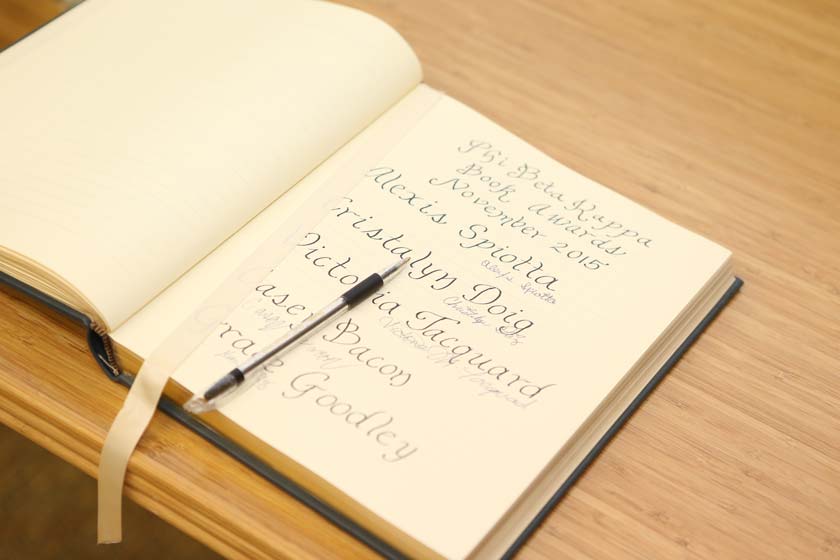 Phi Beta Kappa
Book Awards
November 2015
Alexis Spiotta
Alexis Spiotta
Cristalyn Doig
Victoria Jacquard
Victoria Jacquard
Casey Bacon
Grace Goodley